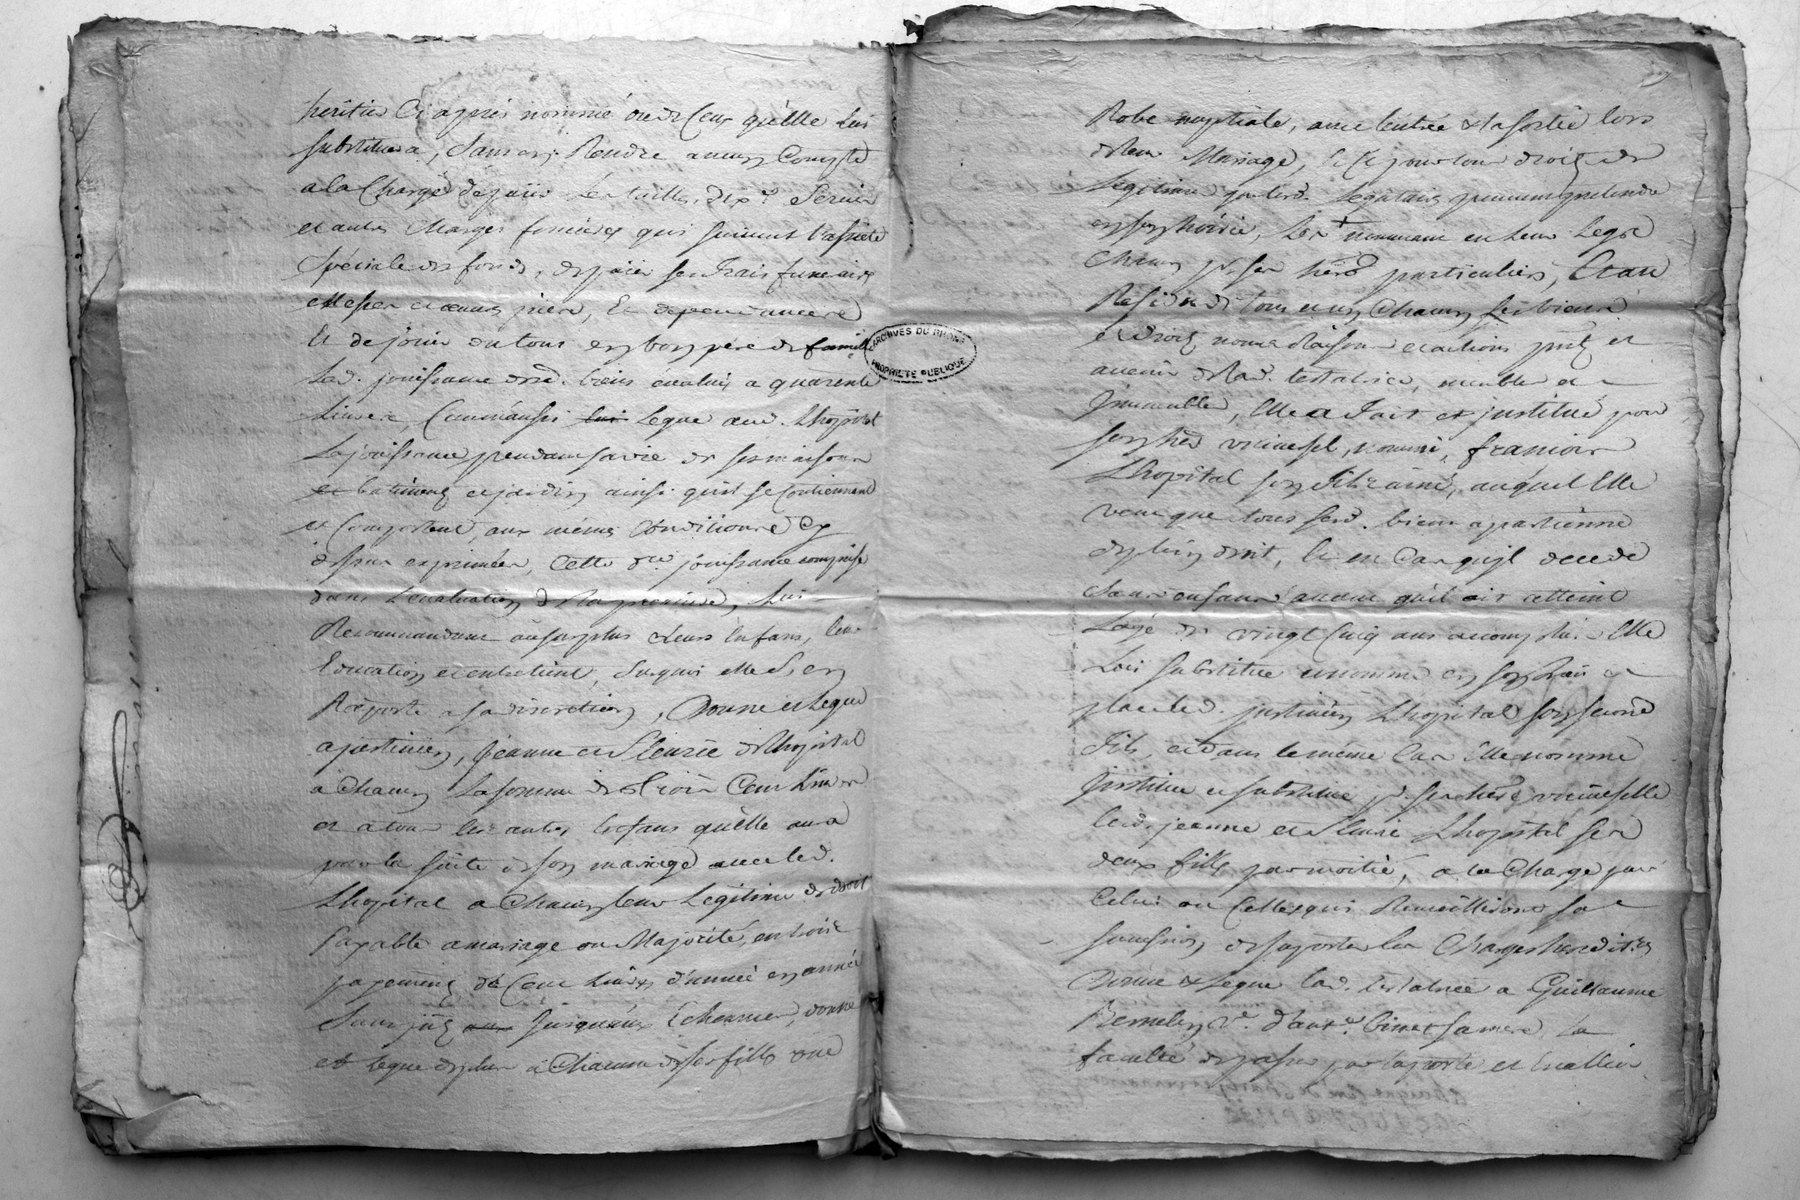 heritier Ci apprès nommé ou de Ceux qu'elle Lui
substituera, sans en Rendre aucun Compte
a la Charge de païer les tailles, dix.e Servis
et autres Charges foncieres qui suivent l'assiete
Spéciale des fonds, de païer ses frais funeraires
messes et œuvres pies, Et dependances
Et de jouir du tout en bon pere de famille
Lad. jouissance desd. biens évaluée a quarente
Livres, Comm'aussi Legue aud. Lhopital
La jouissance pendant sa vie de ses maisons
et batiments et jardin ainsi qu'il se Contiennent
et Comportent, aux mêmes Conditions Cy
dessus exprimées, Cette d.te jouissance comprise
dans L'evaluation de la precedente, Lui
Recommandant au surplus Leurs Enfans, leur
Education et entretient, Surquoi elle S'en
Raporte a sa discretion, Donne et Legue
a justinien, Jeanne et fleurie de Lhopital
a Chacun La somme de trois Cent Livres
et a tous les autres Enfans qu'elle aura
par la suite de son mariage avec led.
Lhopital a Chacun leur Legitime de droit
Payable a mariage ou Majorité, en trois
payements de Cent Livres d'année en année
Sans jnts jusqu'aux Echeances, donne
et legue de plus a Chacune de ses filles une
ARCHIVES DU RHONE
PROPRIETE PUBLIQUE
Robe nuptiale, avec l'entrée et la sortie lors
de leur Mariage, Et Ce pour tous droits de
Legitime que lesd. Legataires peuvent prétendre
en son hoirie, Les nommant en Leurs Legs
Chacun pr. ses hers particuliers, Et au
Residu de tous et un Chacun ses biens
et Droits noms Raisons et actions pnts et
avenir de lad. testatrice, meubles et
Immeubles, Elle a Fait et justitué pour
son her universel, nommé, francois
Lhopital son fils aîné, auquel Elle
veut que tous sesd. biens apartienne
de plein droit, Et en Cas qu'jl decede
sans enfans avant qu'il ait atteint
Lage de vingt Cinq ans accomplis Elle
Lui substitue et nomme en son Lieu et
place led. justinien Lhopital son second
Fils, et dans le même Cas Elle nomme
Jnstitue et substitue pr. ses hers universelle
lesd. jeanne et fleurie Lhopital ses
deux filles par moitié, a la Charge par
Celui ou Celles qui Recueilliront sa
succession de suporter les Charges hereditres
Donne et Legue lad. Testatrice a Guillaume
ve. d'ant.e Binet sa mere La
faculté de passer par la porte et